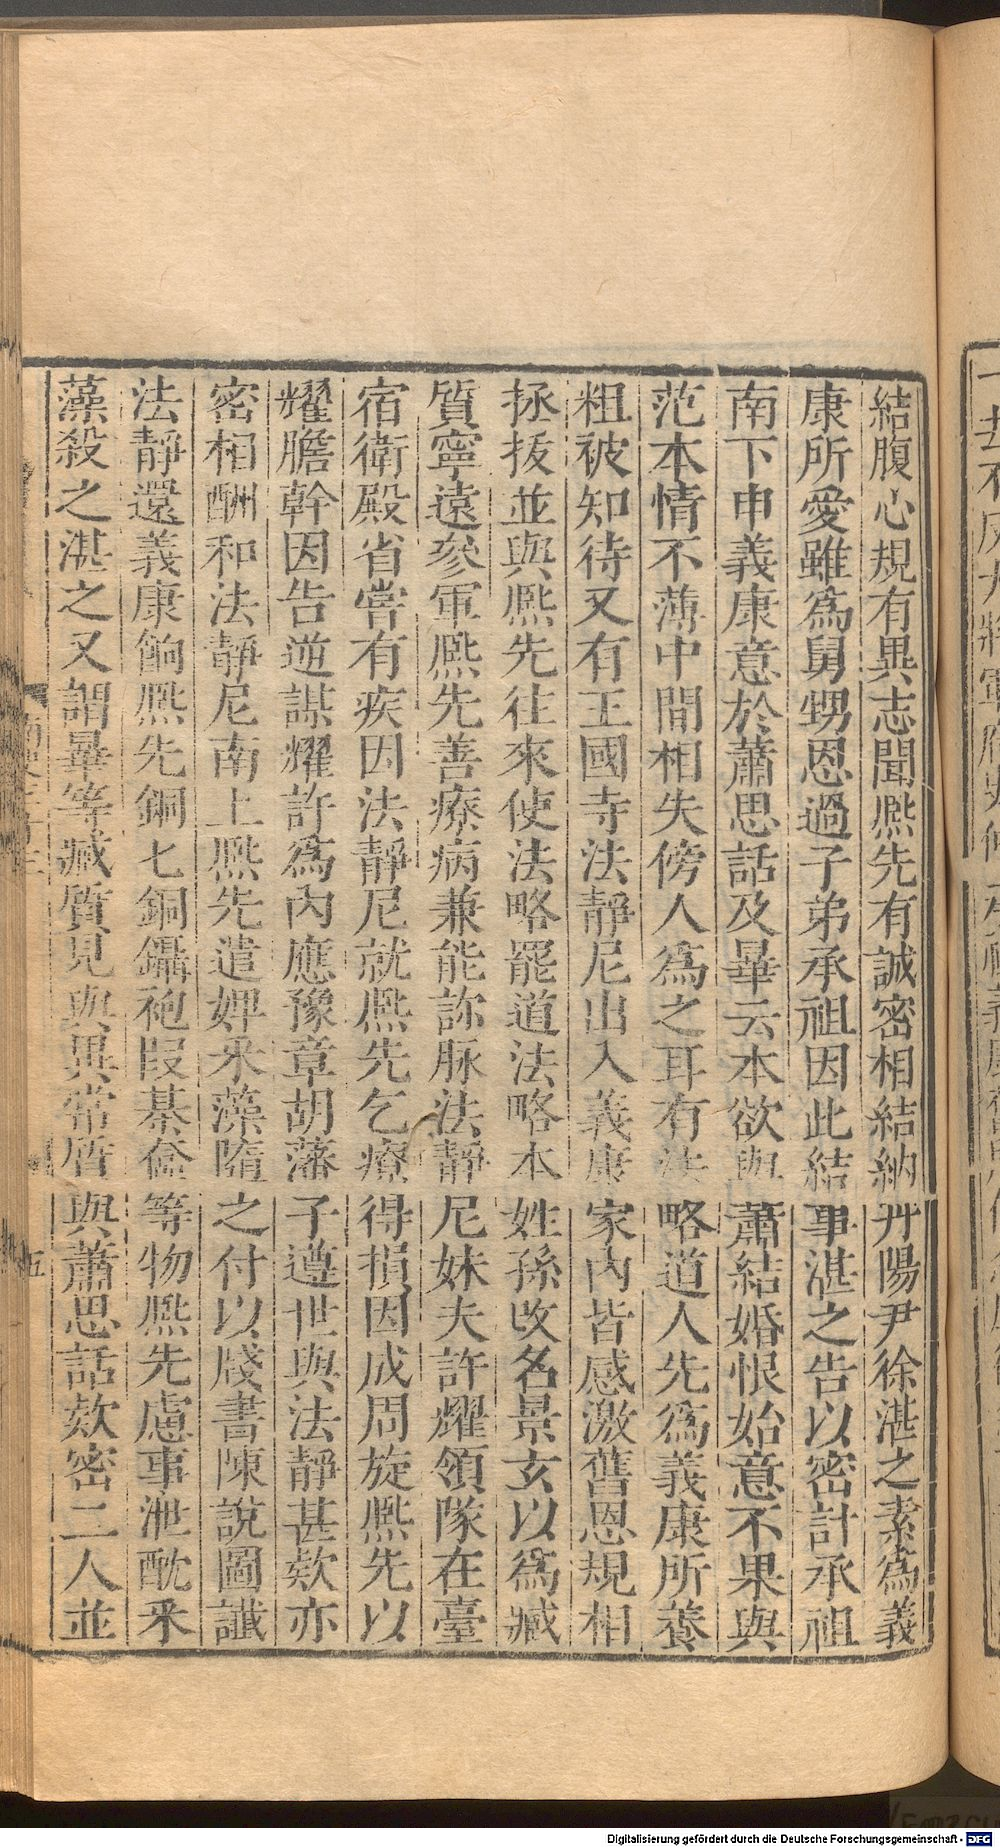 結腹心規有異志聞熈先有誠密相結納丹陽尹徐湛之素為義
康所愛雖為舅甥恩過子弟承祖因此結事湛之告以密計承祖
南下申義康意於蕭思話及曅云本欲與蕭結婚恨始意不果與
范本情不薄中間相失傍人為之耳有法略道人先為義康所養
粗被知待又有王國寺法靜尼出入義康家內皆感激舊恩規相
拯拔並與熈先往來使法略罷道法略本姓孫改名景玄以為臧
質寧遠叅軍熈先善療病兼能診脉法靜尼妹夫許耀領隊在臺
宿衛殿省嘗有疾因法靜尼就熈先乞療得損因成周旋熈先以
耀膽幹因告逆謀耀許為內應豫章胡藩子遵世與法靜甚欵亦
密相酬和法靜尼南上熈先遣婢采藻隨之付以牋書陳說圖讖
法靜還義康餉熈先銅匕銅鑷袍段棊奩等物熈先慮事泄酖采
藻殺之湛之又謂曅等臧質見與異常質與蕭思話欵密二人並
五
Digitalisierung gefördert durch die Deutsche Forschungsgemeinschaft - DFG